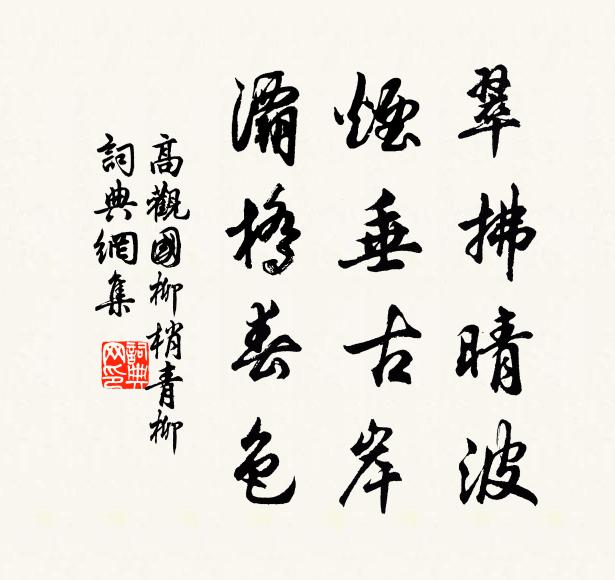 翠拂晴波
煙垂古岸
灞橋春色
高觀國柳梢青柳
詞典網集
詞典
网印